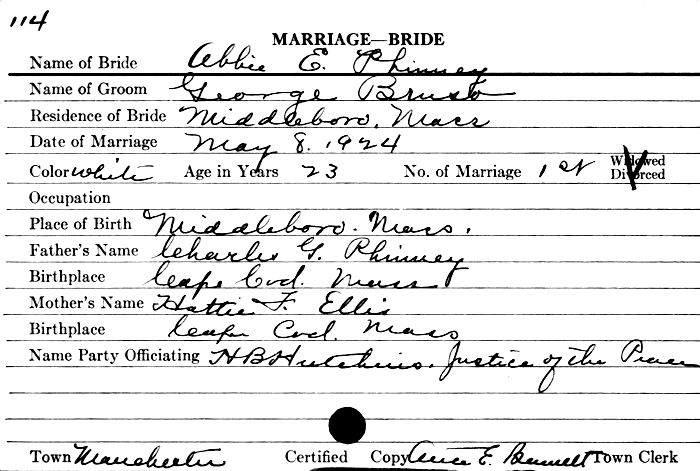 114
MARRIAGE—BRIDE
Name of Bride Abbie E. Phinney
Name of Groom George Bruso
Residence of Bride Middleboro, Mass
Date of Marriage May 8. 1924
Color white Age in Years 23 No. of Marriage 1 st Widowed Divorced
Occupation
Place of Birth Middleboro. Mass.
Father's Name Charles G. Phinney
Birthplace Cape Cod. Mass
Mother's Name Hattie F. Ellis
Birthplace Cape Cod. Mass
Name Party Officiating H B Hutchins. Justice of the Peace
Town Manchester Certified Copy E. Town Clerk